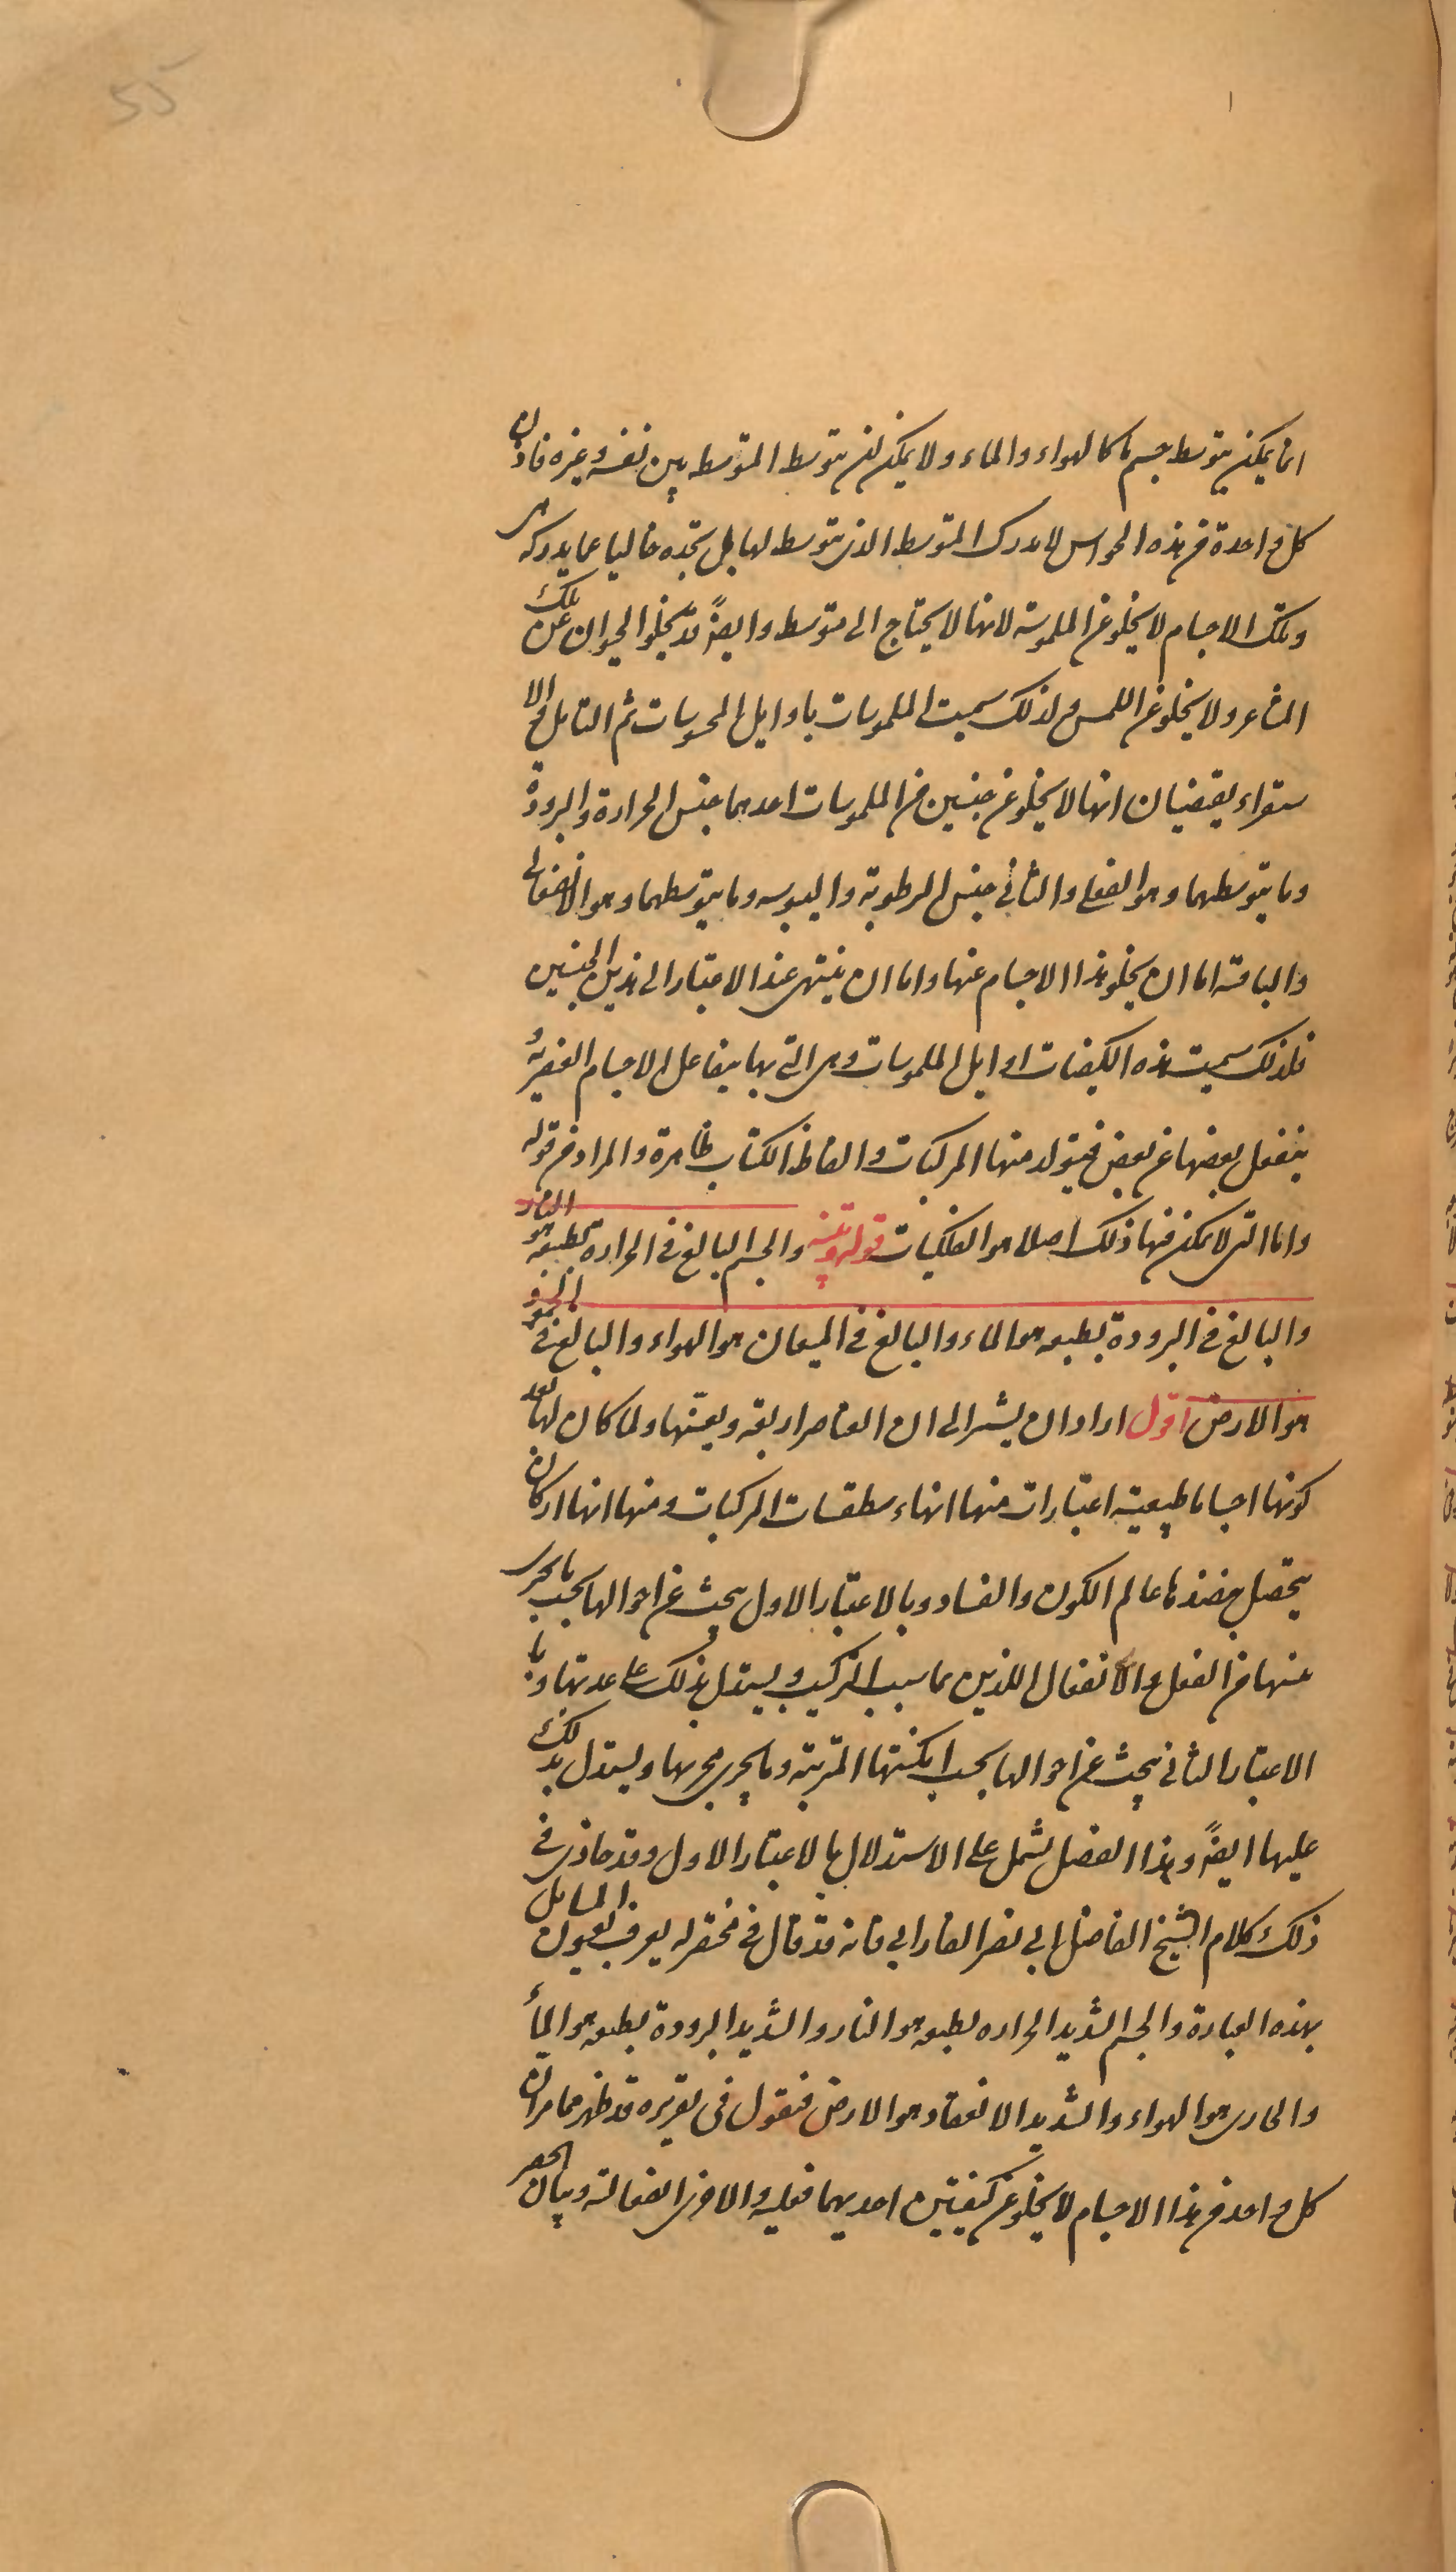 55
انما يمكن بتوسط جسم ما كالهواء والماء ولا يمكن ان يتوسط المتوسط بين نفسه وغيره فاذن
كل واحدة من هذه الحواس لا يدرك المتوسط الذى يتوسط لها بل تجده خاليا عما يدركه هى
وتلك الاجسام لا يخلو عن الملموسة لانها لا يحتاج الى متوسط وايضاً قد يخلو الحيوان عن تلك
المشاعر ولا يخلو عن اللمس ولذلك سميت الملموسات باوايل المحسوسات ثم التامل والا
ستقراء يقتضيان انها لا يخلو عن جنسين من الملموسات احدهما جنس الحرارة والبرودة
وما يتوسطهما وهو الفعلى والثانى جنس الرطوبة واليبوسه وما يتوسطهما وهو الانفعالى
والباقية اما ان يخلو هذا الاجسام عنها واما ان ينتهى عند الاعتبار الى هذين الجنسين
فلذلك سميت هذه الكيفيات اوايل الملموسات وهى التى بها يتفاعل الاجسام العنصرية و
ينفعل بعضها عن بعض فيتولد منها المركبات والفاظ الكتاب ظاهرة والمراد من قوله
واما التى لا يمكن فيها ذلك اصلا هو الفلكيات قوله تنبيه والجسم البالغ فى الحرارة بطبعه هو النار
والبالغ فى البرودة بطبعه هو الماء والبالغ فى الميعان هو الهواء والبالغ فى الجمود
هو الارض اقول اراد ان يشير الى ان العناصر اربعة ويعينها ولما كان لها بعد
كونها اجساما طبيعية اعتبارات منها انها اسطقسات المركبات ومنها انها اركان
يتحصل بنضدها عالم الكون والفساد وبالاعتبار الاول يبحث عن احوالها بحسب ما يجرى
عنها من الفعل والانفعال اللذين هما سبب التركيب ويستدل بذلك على عدتها وبا
الاعتبار الثانى يبحث عن احوالها بحسب امكنتها المترتبة وما يجرى مجريها ويستدل بذلك
عليها ايضاً وهذا الفصل يشمل على الاستدلال بالاعتبار الاول وقد حاذى فى
ذلك كلام الشيخ الفاضل ابى نصر الفارابى فانه قد قال فى مختصر له يعرف بعيون المسايل
بهذه العبارة والجسم الشديد الحراره بطبعه هو النار والشديد البرودة بطبعه هو الماء
والجارى هو الهواء والشديد الانعقاد هو الارض فنقول فى تقريره قد ظهر مما مر ان
كل واحد من هذا الاجسام لا يخلو عن كيفيتين احديهما فعليه والاخرى انفعالية وبيان الحصر